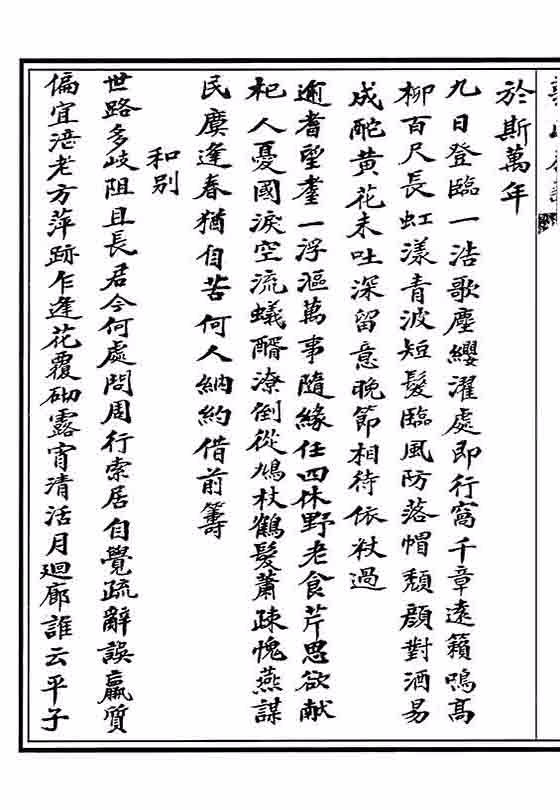 於斯萬年
九日登臨一浩歌塵纓濯處即行窩千章遠籟鳴高
柳百尺長虹漾青波短髮臨風防落帽頹顔對酒易
成酡黃花未吐深留意晚節相待依杖過
逾耆望耋一浮漚萬事隨緣任四休野老食芹思欲献
杞人憂國淚空流蟻醑潦倒從鳩杖鶴髮蕭疎愧燕謀
民賡逢春猶自苦何人納約借前籌
和别
世路多岐阻且長君今何處問周行索居自覺疏辭誤羸質
偏宜浯老方萍跡乍逢花覆砌露宵清活月廻廊誰云平子